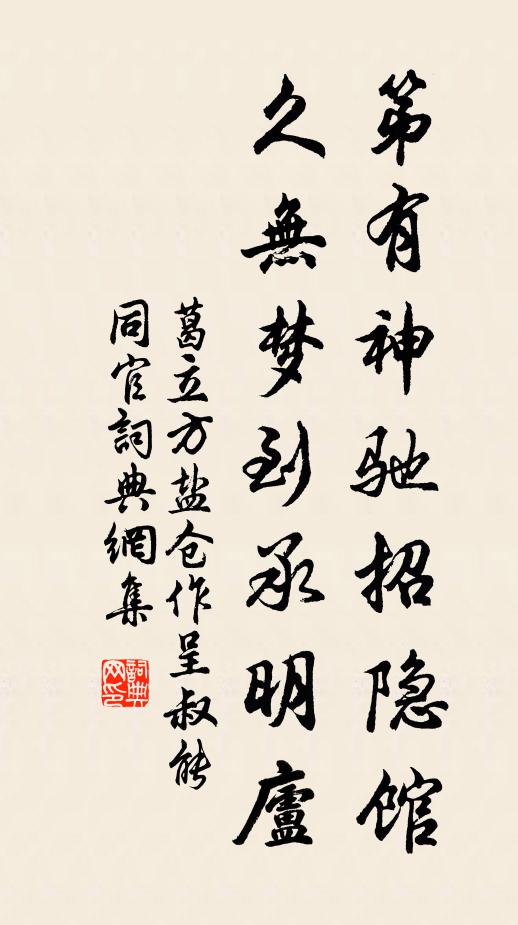 第有神驰招隐馆
久無梦到承明廬
葛立方盐仓作呈叔能
同官詞典網集
詞典
网印